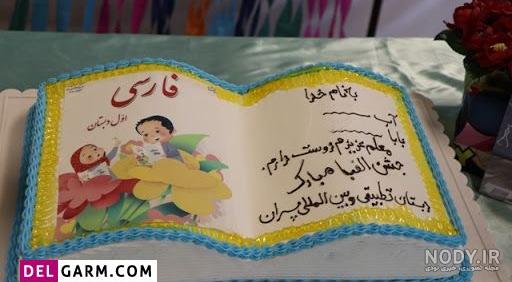 فارسی
اول دبستان
به نام خدا
آب
بابا
معلم عزیزم دوستت دارم.
جشن الفبا مبارک
دبستان تطبیقی و بین المللی پسران
DELGARM.COM
NODY.IR
مجله تصویری، خبری نودی